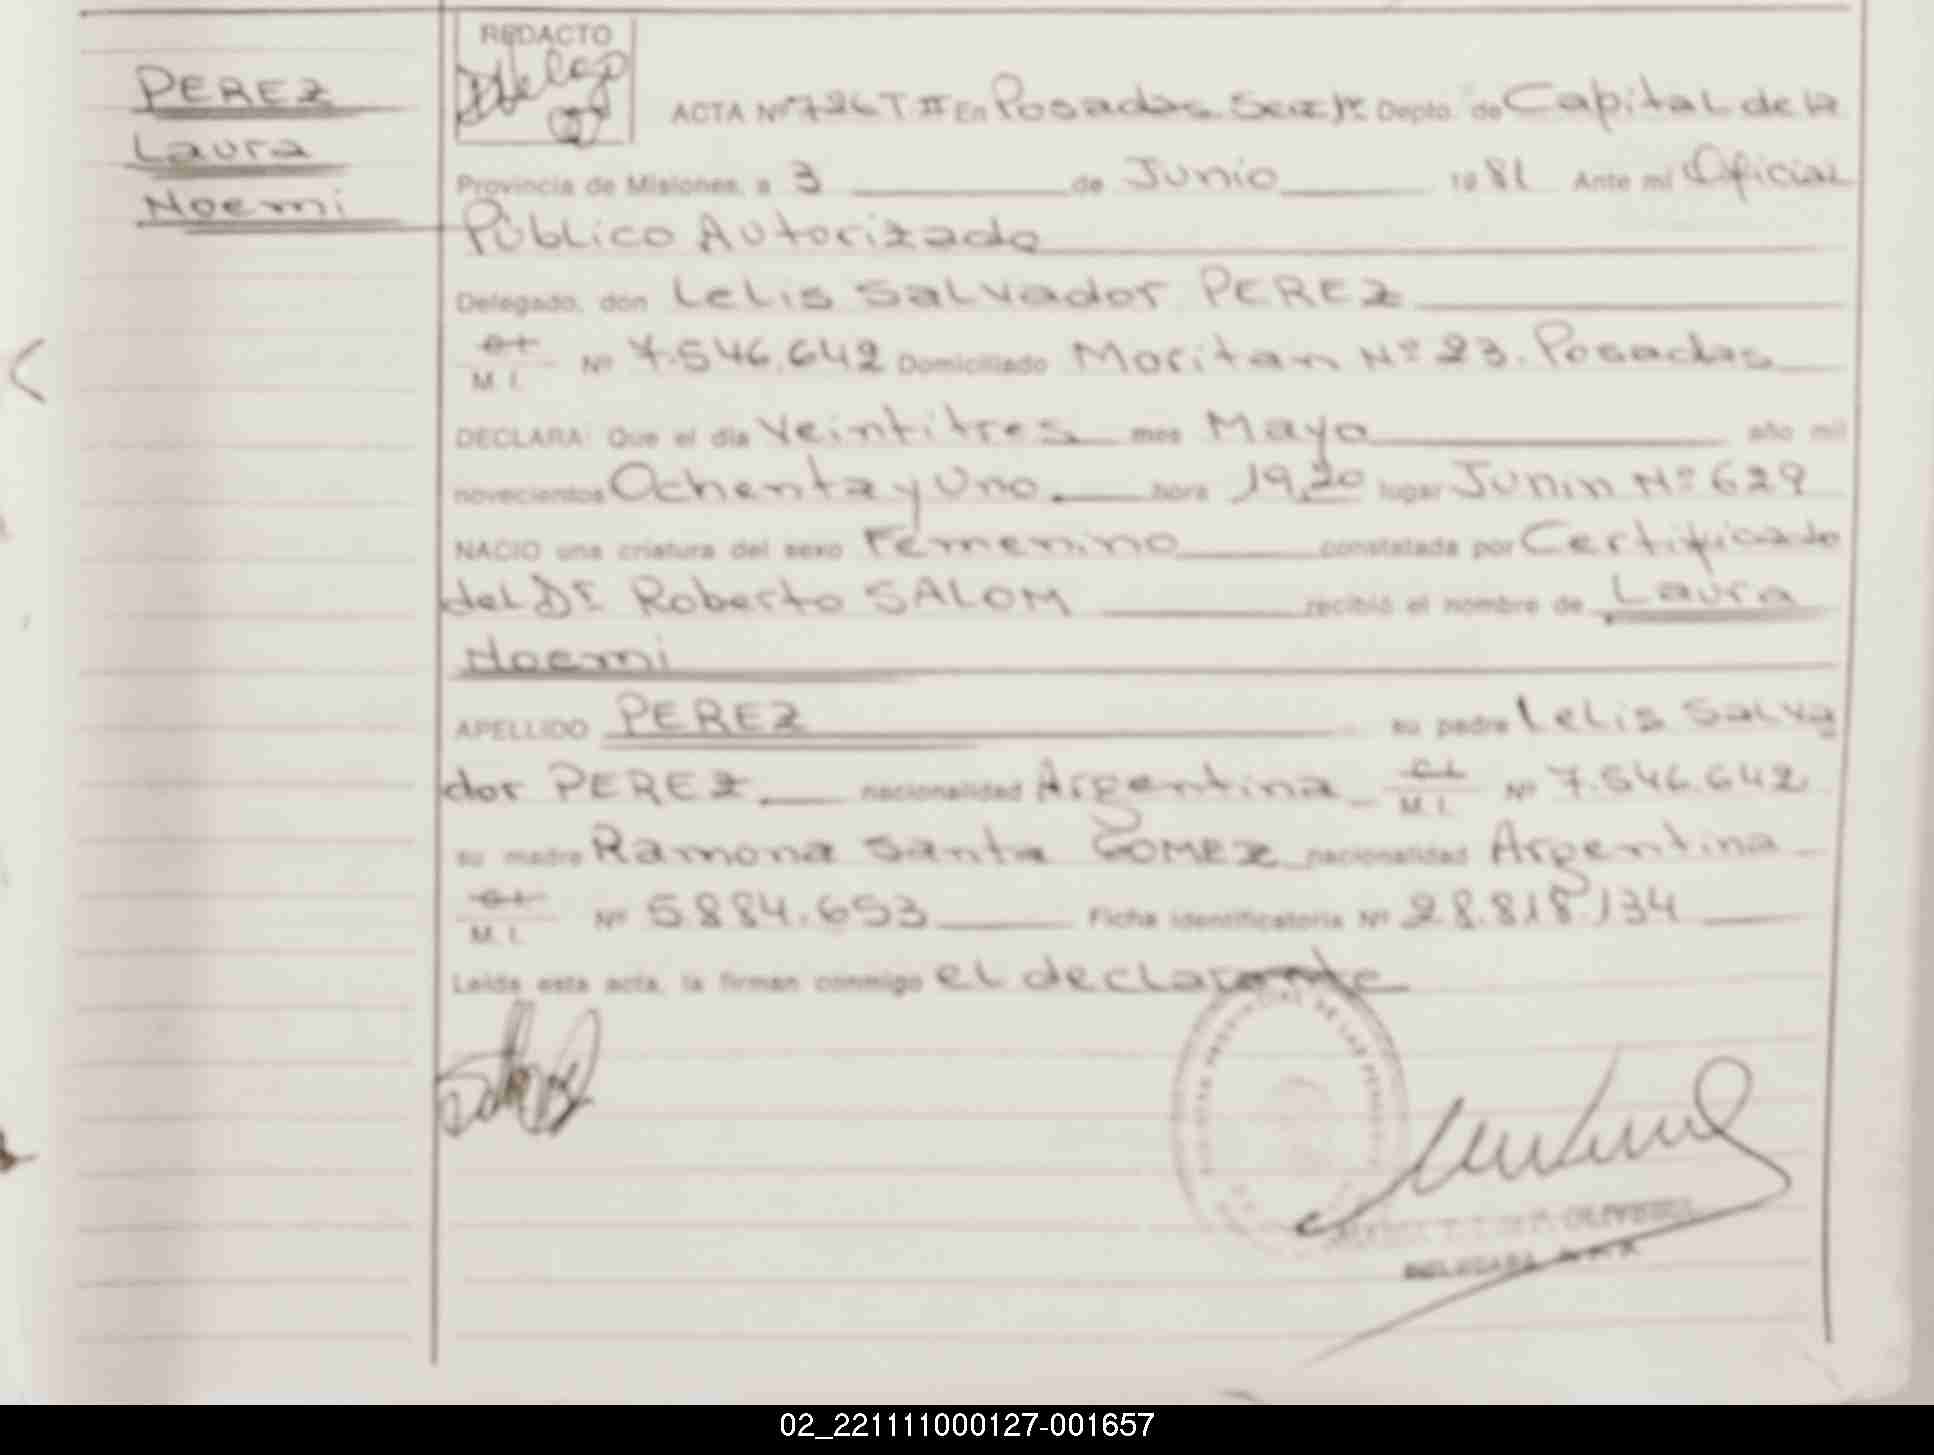 PEREZ
Laura
Noemi
REDACTO
ACTA Nº 726 T II En Posadas Secc 1ª Depto. de Capital de la
Provincia de Misiones, a 3 de Junio 1981 Ante mí Oficial
Público Autorizado
Delegado, don Lelis Salvador PEREZ
C.I.
M. I. Nº 7.546.642 Domiciliado Moritan Nº 23. Posadas
DECLARA: Que el día Veintitres mes Mayo año mil
novecientos Ochenta y Uno hora 19,20 lugar Junin Nº 629
NACIO una criatura del sexo Femenino constatada por Certificado
del Dr. Roberto SALOM recibió el nombre de Laura
Noemi
APELLIDO PEREZ su padre Lelis Salva
dor PEREZ nacionalidad Argentina C.I.
M. I. Nº 7.546.642
su madre Ramona Santa GOMEZ nacionalidad Argentina
C.I.
M. I. Nº 5884.653 Ficha identificatoria Nº 28.818.134
Leída esta acta, la firman conmigo el declarante
02_221111000127-001657